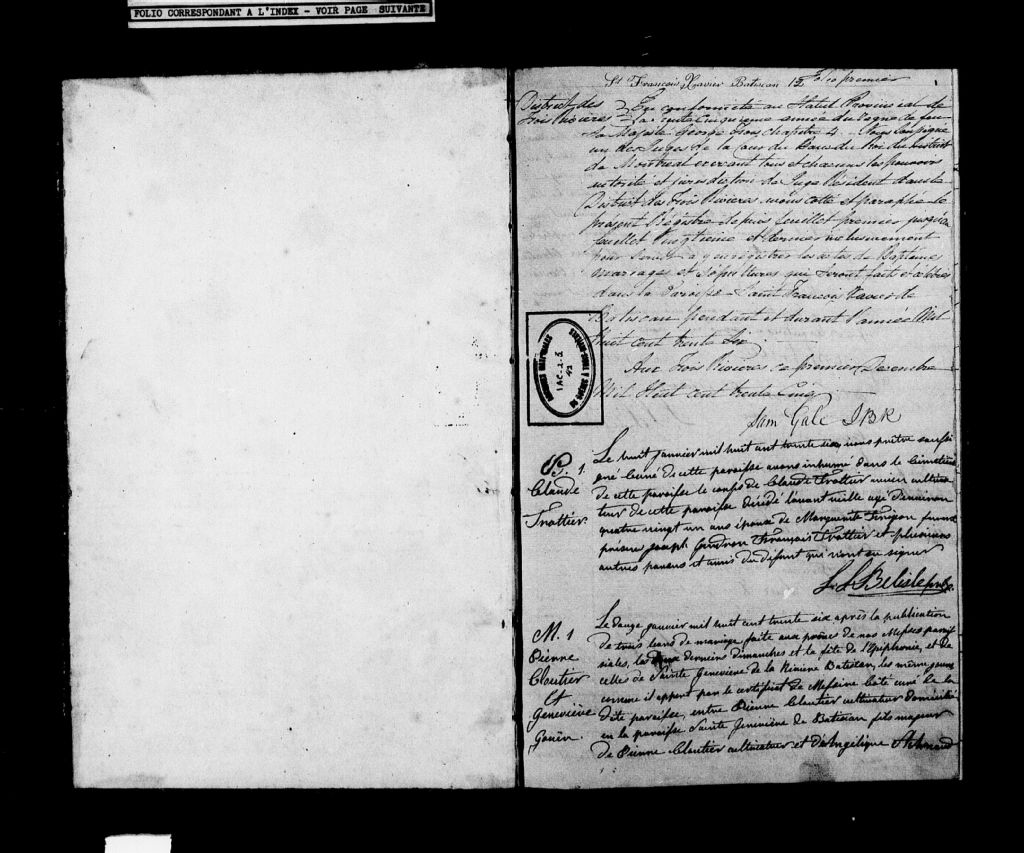 FOLIO CORRESPONDANT A L'INDEX - VOIR PAGE SUIVANTE
St François Xavier Batiscan 12 Folio premier 1
District des
Trois Rivières
En conformité au Statut Provincial de
la trente Cinquieme année du Regne de feu
Sa Majesté George Trois chapitre 4. Nous Soussigné
un des Juges de la Cour du Banc du Roi du District
de Montreal exerçant tous et chacun les pouvoirs
autorité et jurisdiction de Juge Résident dans le
District des Trois Rivieres avons cotté et paraphé le
présent Régistre depuis feuillet premier jusqu'au
feuillet Vingtieme et dernier inclusivement
pour servir a y enregistrer les actes de Baptêmes
mariages et Sépultures qui seront faits
dans la Paroisse Saint François Xavier de
Batiscan pendant et durant l'année Mil
huit cent trente Six
Aux Trois Rivieres ce premier Decembre
Mil Huit cent trente Cinq
Sam Gale JBR
S. 1.
Claude
Trottier.
Le huit janvier mil huit cent trente six nous prêtre soussi
gné Curé de cette paroisse avons inhumé dans le Cimetière
de cette paroisse le corps de Claude Trottier ancien cultiva
teur de cette paroisse décédé l'avant veille agé d'environ
quatre vingt un ans époux de Marguerite furent
présens Joseph Gendron François Trottier et plusieurs
autres parens et amis du défunt qui n'ont su signer
Belisle ptre
M. 1
Pierre
Cloutier
et
Geneviève
Gouin.
Le douze janvier mil huit cent trente six après la publication
de trois bans de mariage faite aux prônes de nos Messes parois
siales, les deux derniers dimanches et la fête de l'Epiphanie, et de
celles de Sainte Geneviève de la Rivière Batiscan, les même jours
comme il appert par le certificat de Messire Côté curé de la
dite paroisse, entre Pierre Cloutier cultivateur domicilié
en la paroisse Sainte Geneviève de Batiscan fils majeur
de Pierre Cloutier cultivateur et d'Angélique